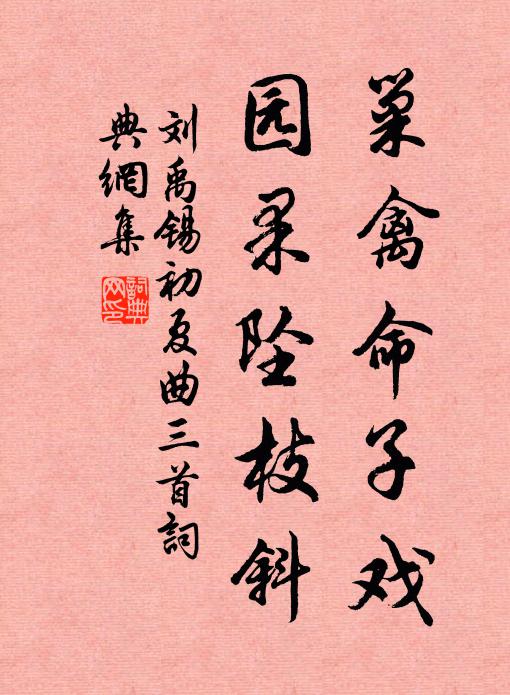 巢禽命子戏
园果坠枝斜
刘禹锡初夏曲三首詞
典網集
詞典
网印